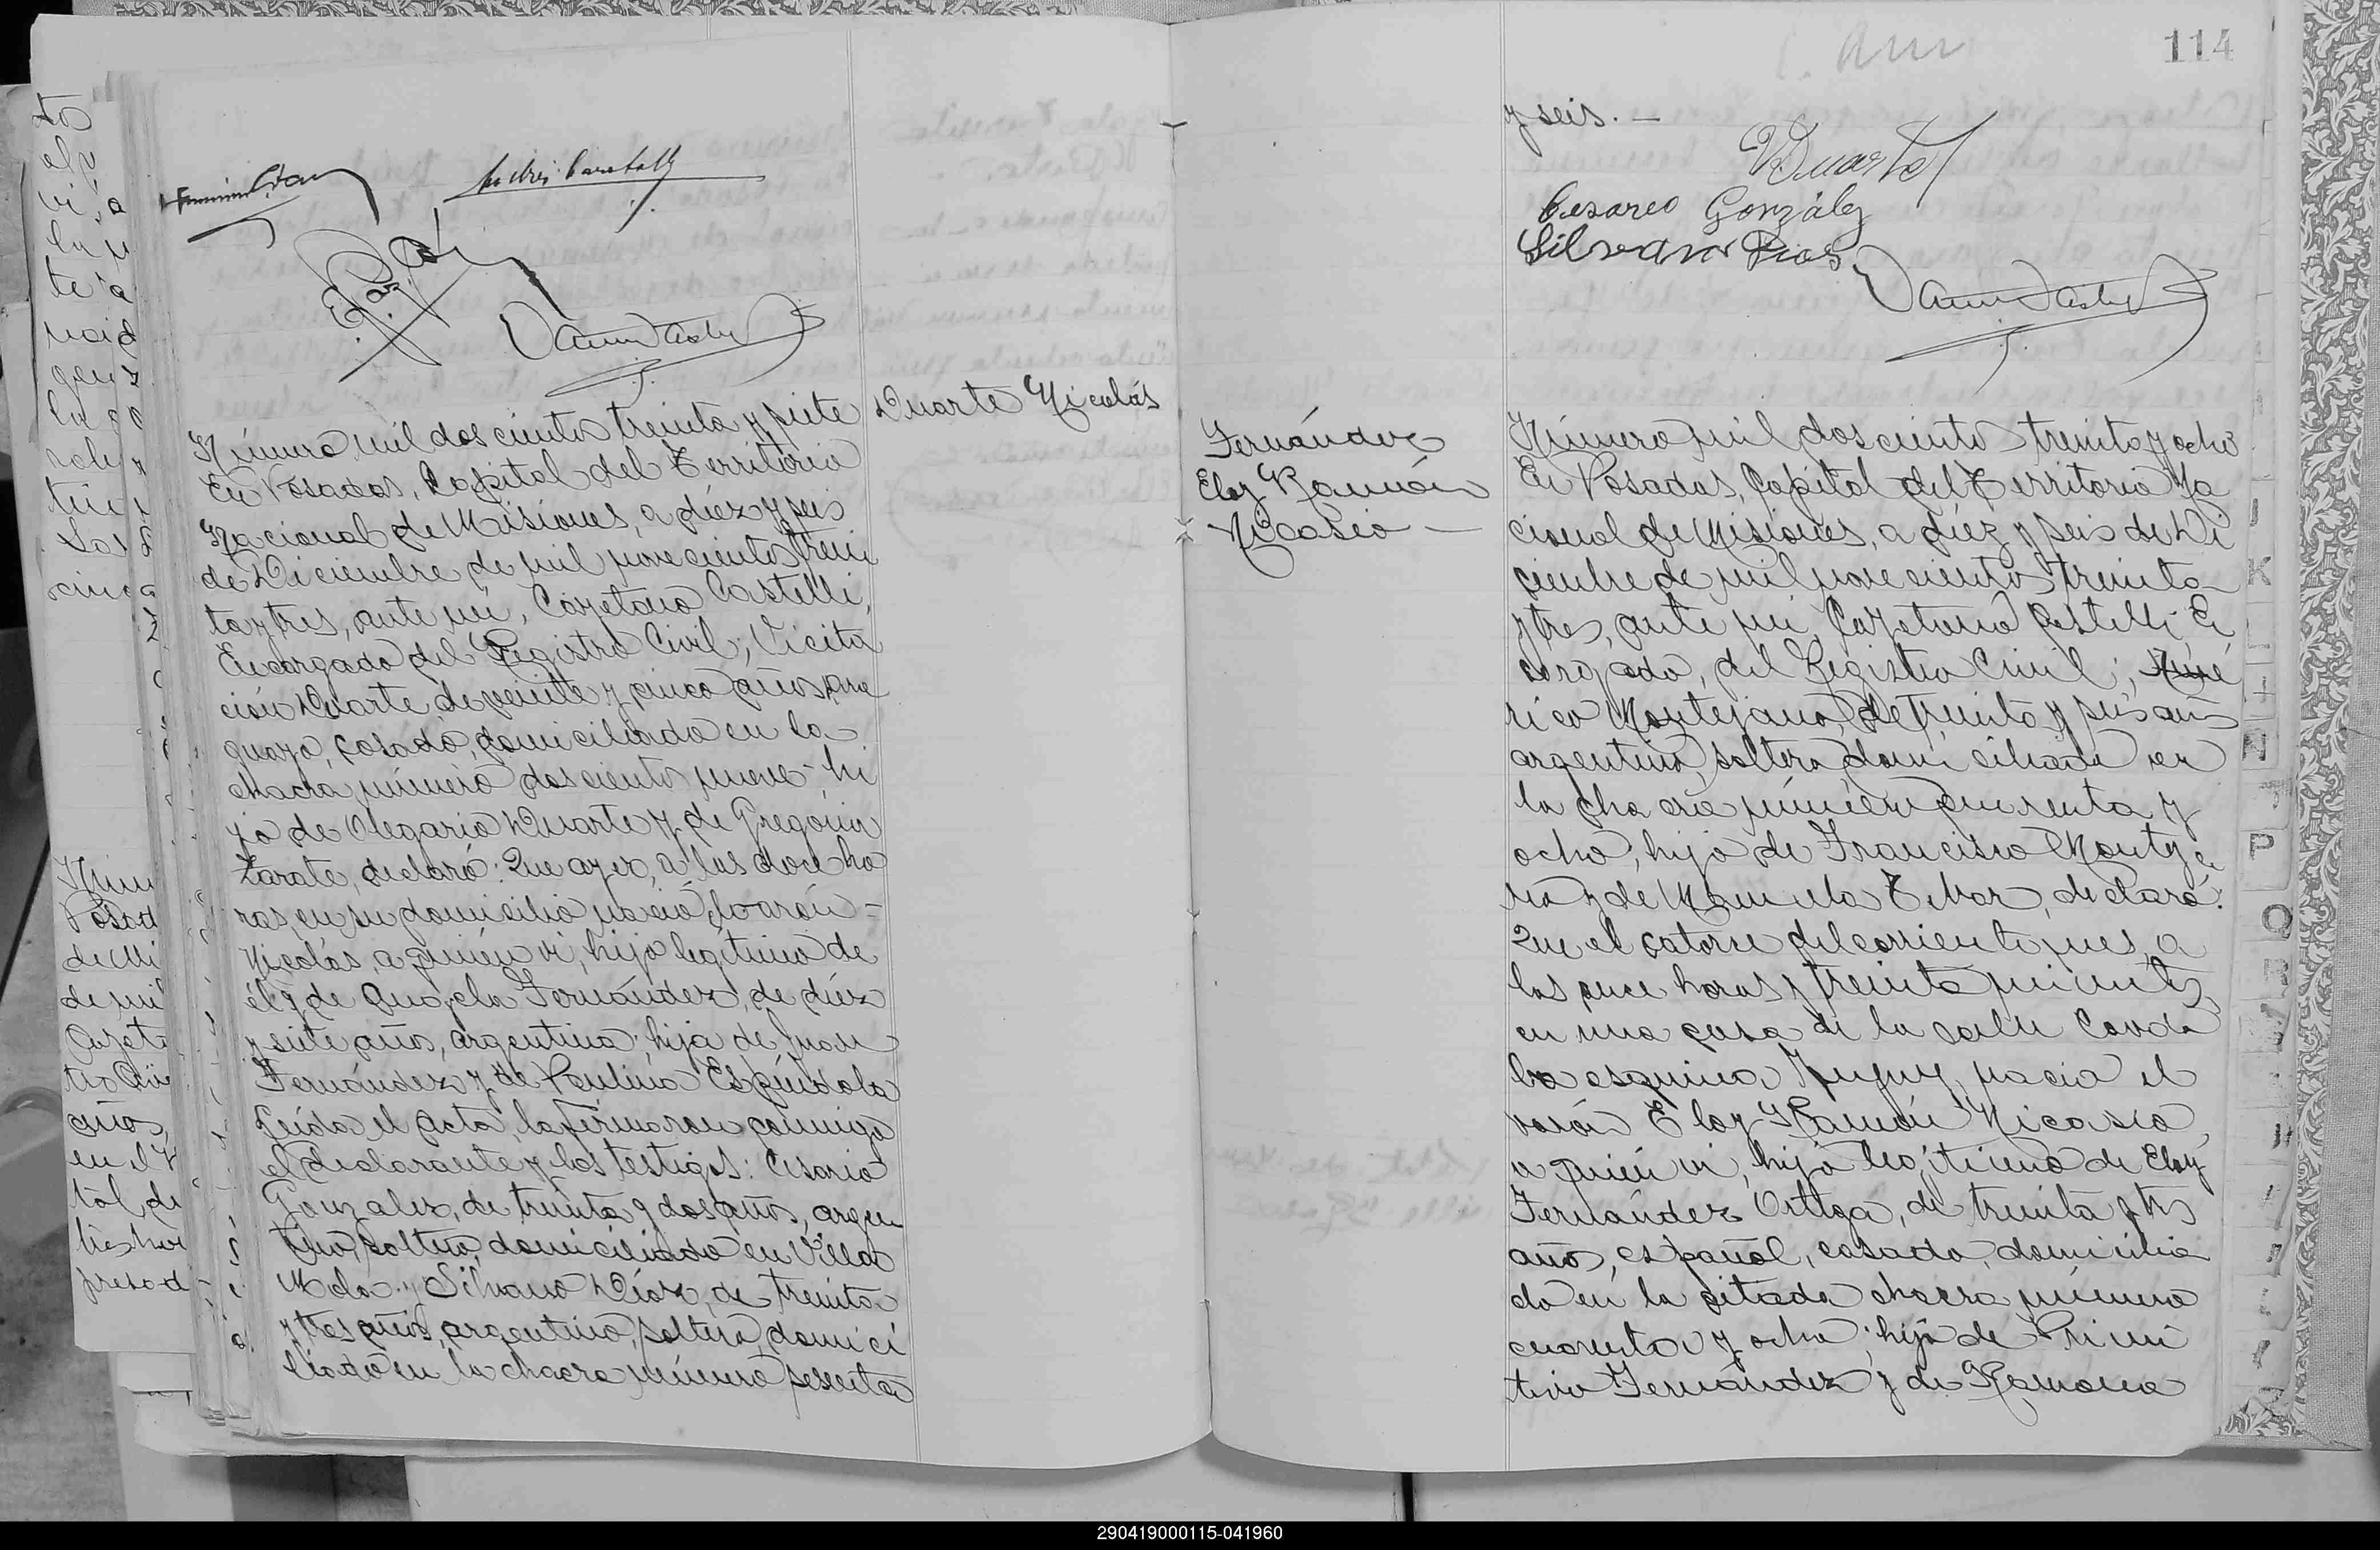 Duarte Nicolás
Número mil doscientos treinta y siete
En Posadas, Capital del Territorio
Nacional de Misiones, a diéz y seis
de Diciembre de mil novecientos trein
ta y tres, ante mi, Cayetano Castelli,
Encargado del Registro Civil; Vicita
ción Duarte, de veinte y cinco años, para
guayo, casado, domiciliado en la
chacra número doscientos nueve, hi
jo de Olegario Duarte y de Gregoria
Zarate, declaró: Que ayer, a las doce ho
ras, en su domicilio nació el varón
Nicolás, a quién vi, hijo legítimo de
él y de Fernández, de diéz
y siete años, argentina; hija de Juan
Fernández y de Paulina Espíndola
Leída el acta, la firmaron conmigo
el declarante y los testigos: Cesario
Gonzalez, de treinta y dos años, argen
tino, soltero, domiciliado en Villa
y Silvano Díaz, de treinta
y tres años, argentino, soltero, domici
liado en la chacra número sesenta
114
y seis. —
VDuarte
Cesareo González
Silvano
Fernández
Eloy Ramón
Nicasio —
Número mil doscientos treinta y ocho
En Posadas, Capital del Territorio Na
cional de Misiones, a diéz y seis de Di
ciembre de mil novecientos treinta
y tres, ante mi, Cayetano Castelli En
cargado, del Registro Civil; Amé
rico Montejano, de treinta y seis años
argentino, soltero, domiciliado en
la chacra número cuarenta y
ocho, hijo de Francisco Monteja
no y de Manuela, declaró:
Que el catorce del corriente mes, a
las once horas y treinta minutos
en una casa de la calle
esquina Jujuy, nació el
varón Eloy Ramón Nicasio,
a quién vi, hijo legítimo de Eloy
Fernández Ortega, de treinta y tres
años, español, casado, domicilia
do en la citada chacra número
cuarenta y ocho; hijo de Primi
tivo Fernández y de Ramona
J
K
L
N
P
Q
R
290419000115-041960